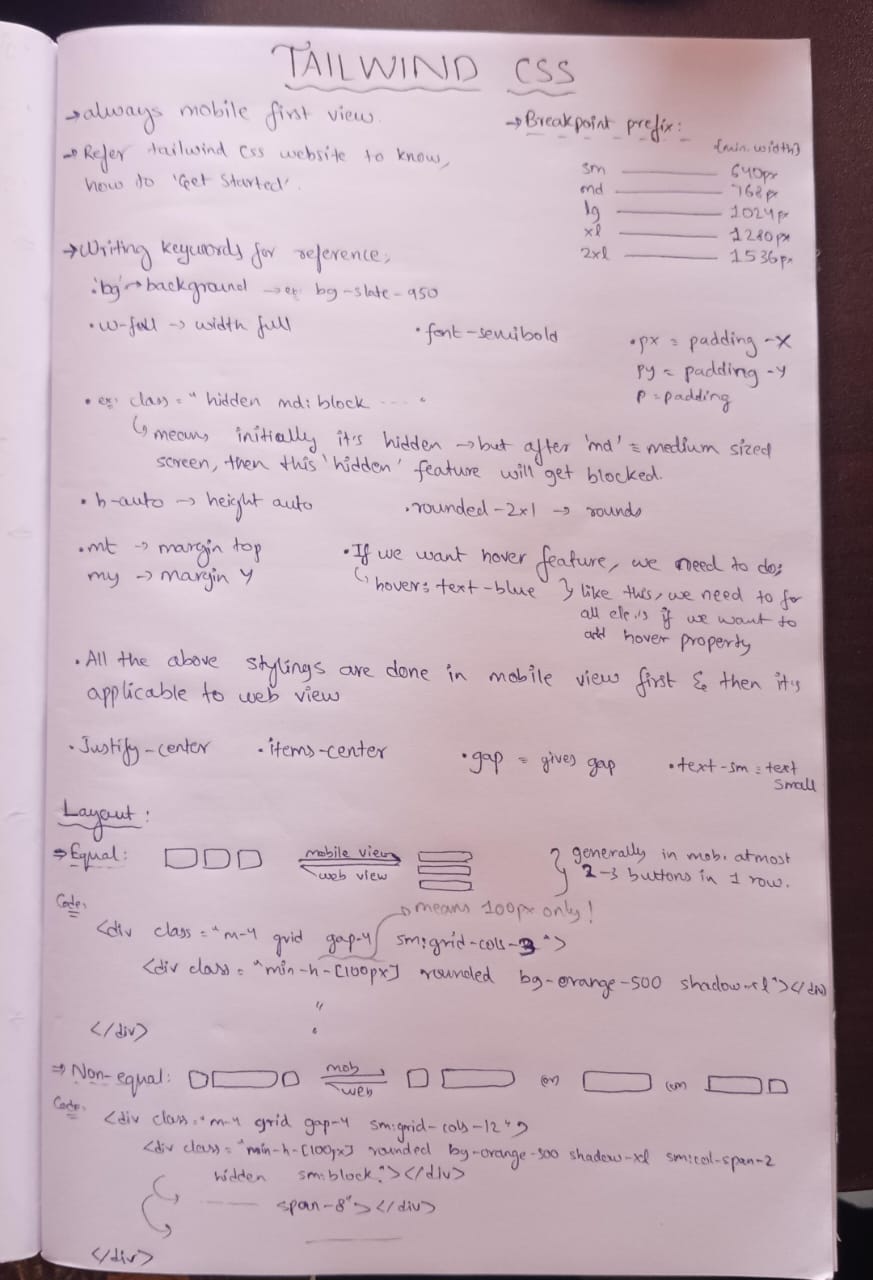 TAILWIND CSS
→ always mobile first view.
→ Refer tailwind css website to know,
how to 'Get Started'.
→ Breakpoint prefix:
(min. width)
sm 640px
md 768px
lg 1024px
xl 1280px
2xl 1536px
→ Writing keywords for reference,
'bg' → background → ex: bg-slate-950
• w-full → width full
• font-semibold
• px = padding-X
py = padding-y
p = padding
• ex: class = " hidden md:block ---- "
↳ means initially it's hidden → but after 'md' = medium sized
screen, then this 'hidden' feature will get blocked.
• h-auto → height auto
• rounded-2xl → rounds
• mt → margin top
my → margin y
• If we want hover feature, we need to do;
↳ hover: text-blue } like this, we need to for
all if we want to
add hover property
• All the above stylings are done in mobile view first & then it's
applicable to web view
• Justify-center • items-center
• gap = gives gap
• text-sm = text
small
Layout:
⇒ Equal:
mobile view
web view
} generally in mob. atmost
2-3 buttons in 1 row.
Code:
→ means 100px only!
<div class = "m-4 grid gap-4 sm:grid-cols-3">
<div class = "min-h-[100px] rounded bg-orange-500 shadow-xl"></div>
"
</div>
⇒ Non-equal:
mob
web
(or)
(or)
Code:
<div class = "m-4 grid gap-4 sm:grid-cols-12">
<div class = "min-h-[100px] rounded bg-orange-500 shadow-xl sm:col-span-2
hidden sm:block"></div>
------ span-8"></div>
</div>